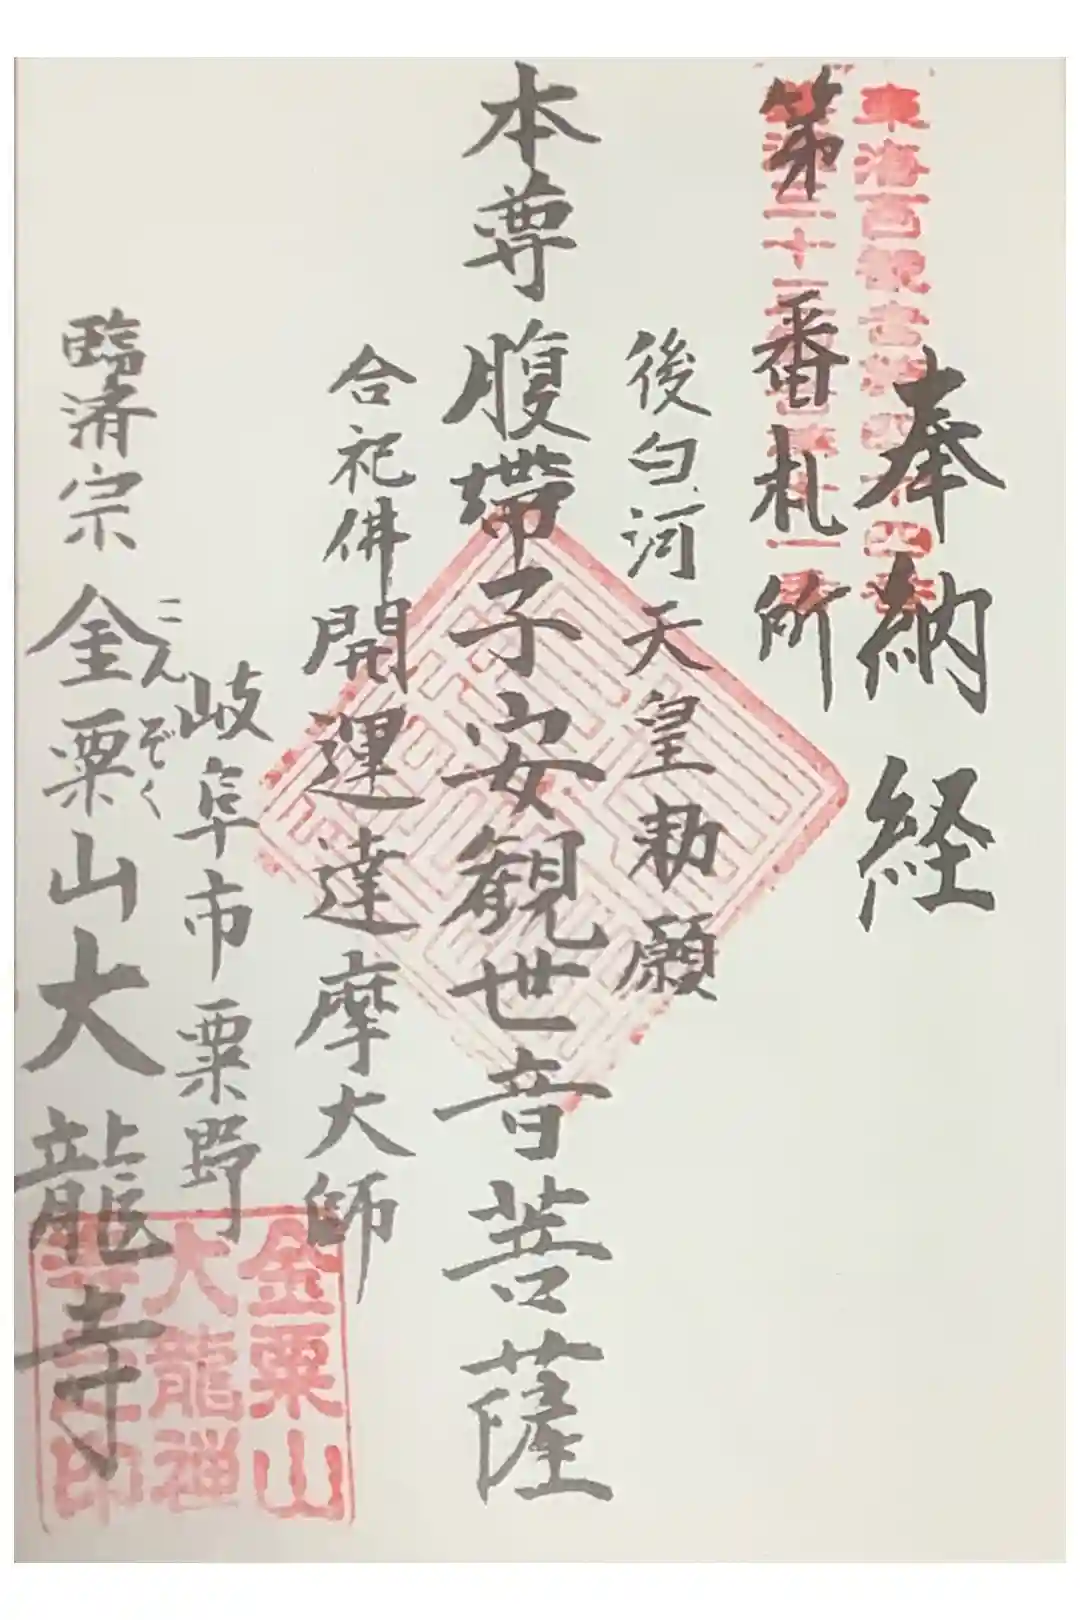 奉納経
東海百観音第四十四番
第 番札所
後白河天皇勅願
本尊腹帯子安観世音菩薩
合祀佛開運達摩大師
岐阜市粟野
こんぞく
臨済宗金粟山大龍寺
金粟山
大龍禅
寺之印